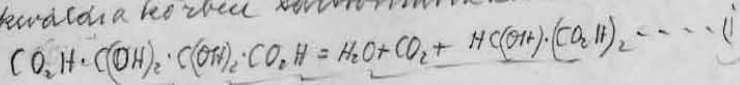 CO₂H·C(OH)₂·C(OH)₂·CO₂H = H₂O + CO₂ + HC(OH)·(CO₂H)₂ - - - - - (i